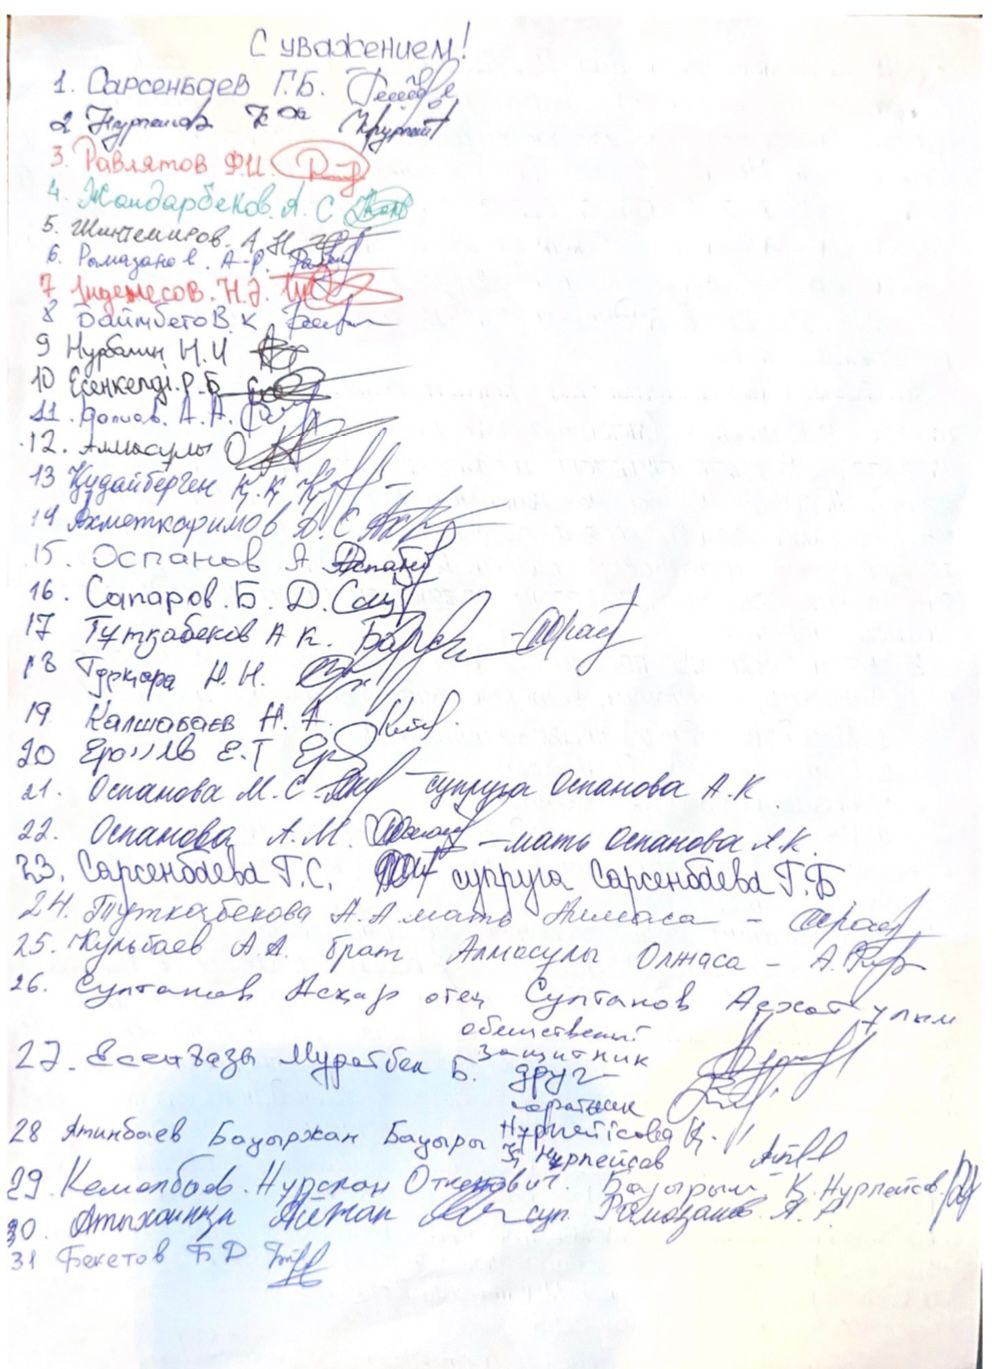 С уважением!
1. Сарсенбаев Г.Б.
2 Нурпеисов Қ
3. Равлятов Ф.И.
4. Жандарбеков. А. С
5. Минтемиров. А. Н
6. Рамазанов. А-Р.
7 Індемесов. Н.Э.
8 Баймбетов. К
9 Нурбалин Н.И
10 Есенкелді. Р. Б
11. А. А.
12. Алмасулы О
13 Құдайберген Қ. Қ
14 Ахметкаримов Д. С
15. Оспанов А
16. Сапаров. Б. Д.
17 Тутқабеков А К.
18 Турқара Н. Н.
19 Калшабаев Н. А.
20 Е. Т
21. Оспанова М. С. - супруга Оспанова А. К
22. Оспанова А. М. - мать Оспанова А. К.
23. Сарсенбаева Г. С. супруга Сарсенбаева Г. Б
24. Туткабекова А. А мать Алмаса -
25. Кульбаев А.А. брат Алмасулы Олжаса -
26. Султанов Асқар отец Султанов Асхат ұлым
общественный
27. Есенгазы Муратбек Б. защитник
друг-
соратник
28 Атинбаев Бауыржан Бауыры Нурпейісова Қ.
Қ Нурпейсов
29. Кемалбаев. Нурсхан Бауырым - К. Нурпейсов
30. суп. Рамазанов. А. Р
31 Бекетов Б. Д